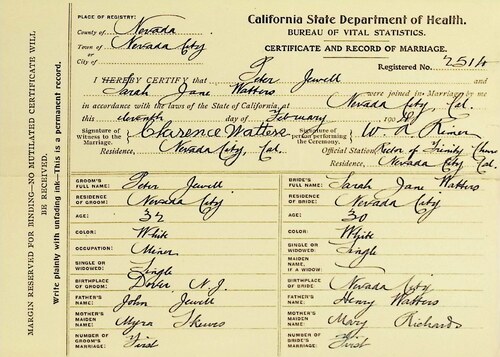 PLACE OF REGISTRY:
County of Nevada
Town of Nevada City
City of
California State Department of Health.
BUREAU OF VITAL STATISTICS.
CERTIFICATE AND RECORD OF MARRIAGE.
Registered No. 2514
I HEREBY CERTIFY that Peter Jewell
and Sarah Jane Watters were joined in Marriage by me
in accordance with the laws of the State of California, at Nevada City, Cal.
this eleventh day of February 190
Signature of Witness to the Marriage. Clarence Watters
Signature of person performing the Ceremony. W.
Residence, Nevada City, Cal.
Official Station, Rector of Trinity
Residence, Nevada City Cal
MARGIN RESERVED FOR BINDING—NO MUTILATED CERTIFICATE WILL BE RECEIVED.
Write plainly with unfading ink—This is a permanent record.
GROOM'S FULL NAME: Peter Jewell
RESIDENCE OF GROOM: Nevada City
AGE: 32
COLOR: White
OCCUPATION: Miner
SINGLE OR WIDOWED: Single
BIRTHPLACE OF GROOM: Dover, N.J.
FATHER'S NAME: John Jewell
MOTHER'S MAIDEN NAME: Myra Skewes
NUMBER OF GROOM'S MARRIAGE: First
BRIDE'S FULL NAME: Sarah Jane Watters
RESIDENCE OF BRIDE: Nevada City
AGE: 30
COLOR: White
SINGLE OR WIDOWED: Single
MAIDEN NAME, IF A WIDOW:
BIRTHPLACE OF BRIDE: Nevada City
FATHER'S NAME: Henry Watters
MOTHER'S MAIDEN NAME: Mary Richards
NUMBER OF BRIDE'S MARRIAGE: First